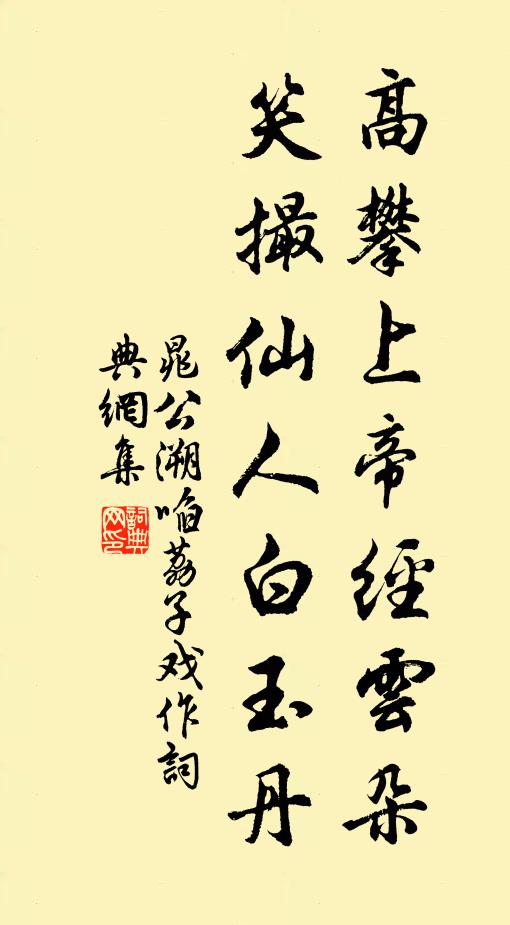 高攀上帝經雲朵
笑撮仙人白玉丹
晁公溯啗荔子戏作詞
典網集
詞典
网印